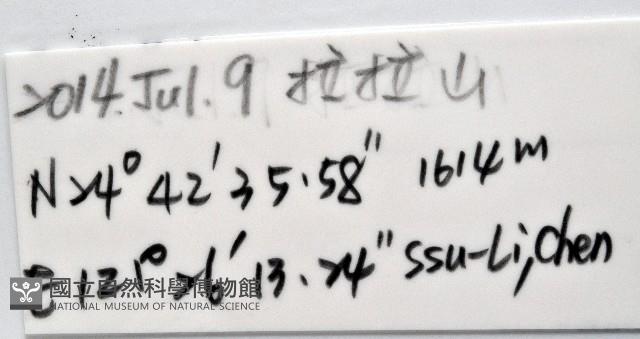 2014.Jul.9 拉拉山
N24°42'35.58" 1614m
E121°26'13.24" ssu-Li,Chen
國立自然科學博物館
NATIONAL MUSEUM OF NATURAL SCIENCE